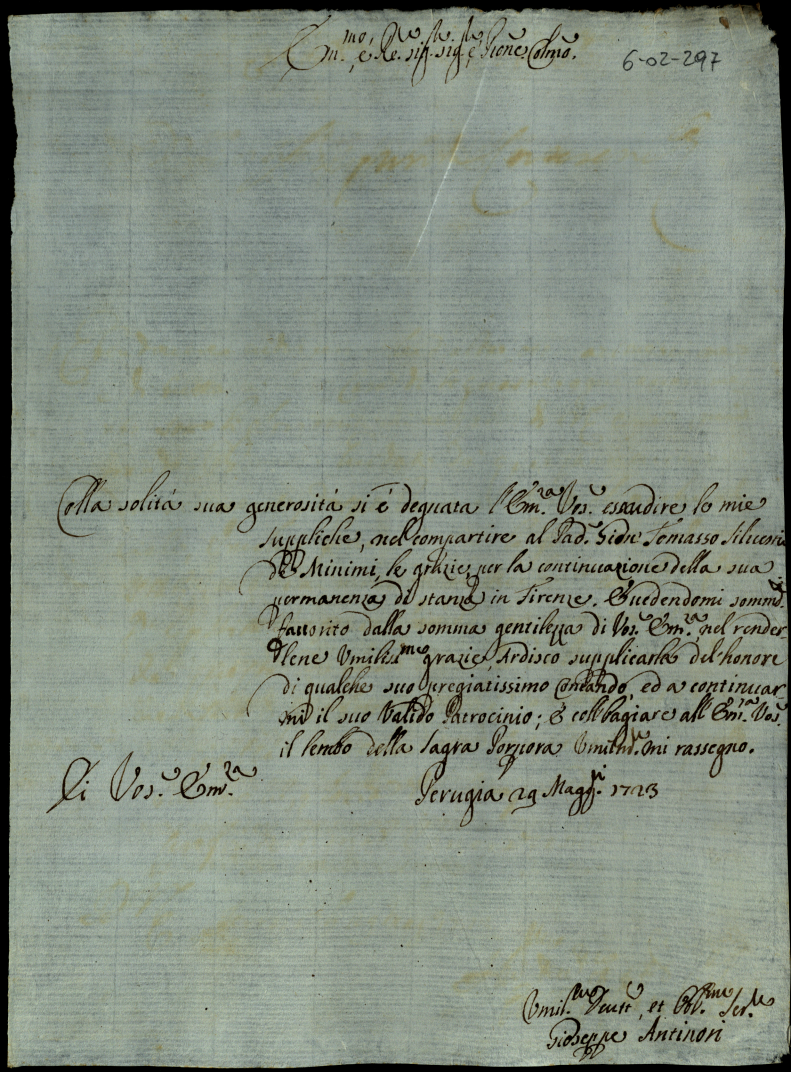 Em.mo, e Re. sig. sig. e, Pione Colmo.
6-02-297
Colla solitá sua generositá si é degnata l'Em.za Vos. esaudire le mie
suppliche, nel compartire al Pad. Gion Tomasso
de Minimi, le grazie, per la continuazione della sua
permanenza di stanza in Firenze. E uedendomi somm.
fauorito dalla somma gentilezza di Vos. Em.za nel render-
lene Vmiliss.me grazie, Ardisco supplicarla del'honore
di qualche suo pregiatissimo comando, ed a continuar
mi il suo Valido Patrocinio; E coll bagiare all Em.za Vos.
il lembo della Sagra Porpora Vmilm. mi rassegno.
Di Vos. Em.za
Perugia 29 Magg. 1723
Vmil.mo Deuit., et Obl.mo Ser.
Gioseppe Antinori